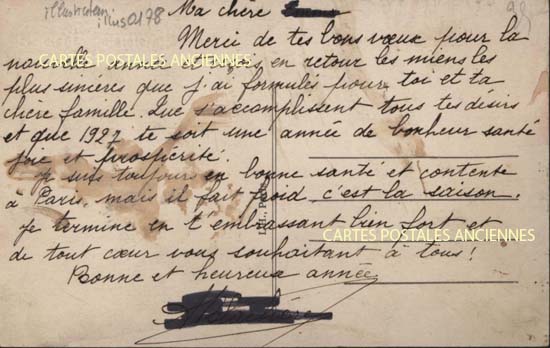 illustrateur
illus0178
98
Ma chère
Merci de tes bons vœux pour la
nouvelle année et reçois en retour les miens les
plus sincères que j'ai formulés pour toi et ta
chère famille. Que s'accomplissent tous tes désirs
et que 1927 te soit une année de bonheur santé
joie et prospérité.
Je suis toujours en bonne santé et contente
à Paris, mais il fait froid c'est la saison.
Je termine en t'embrassant bien fort et
de tout cœur vous souhaitant à tous!
Bonne et heureuse année.
CARTES POSTALES ANCIENNES
CARTES POSTALES ANCIENNES